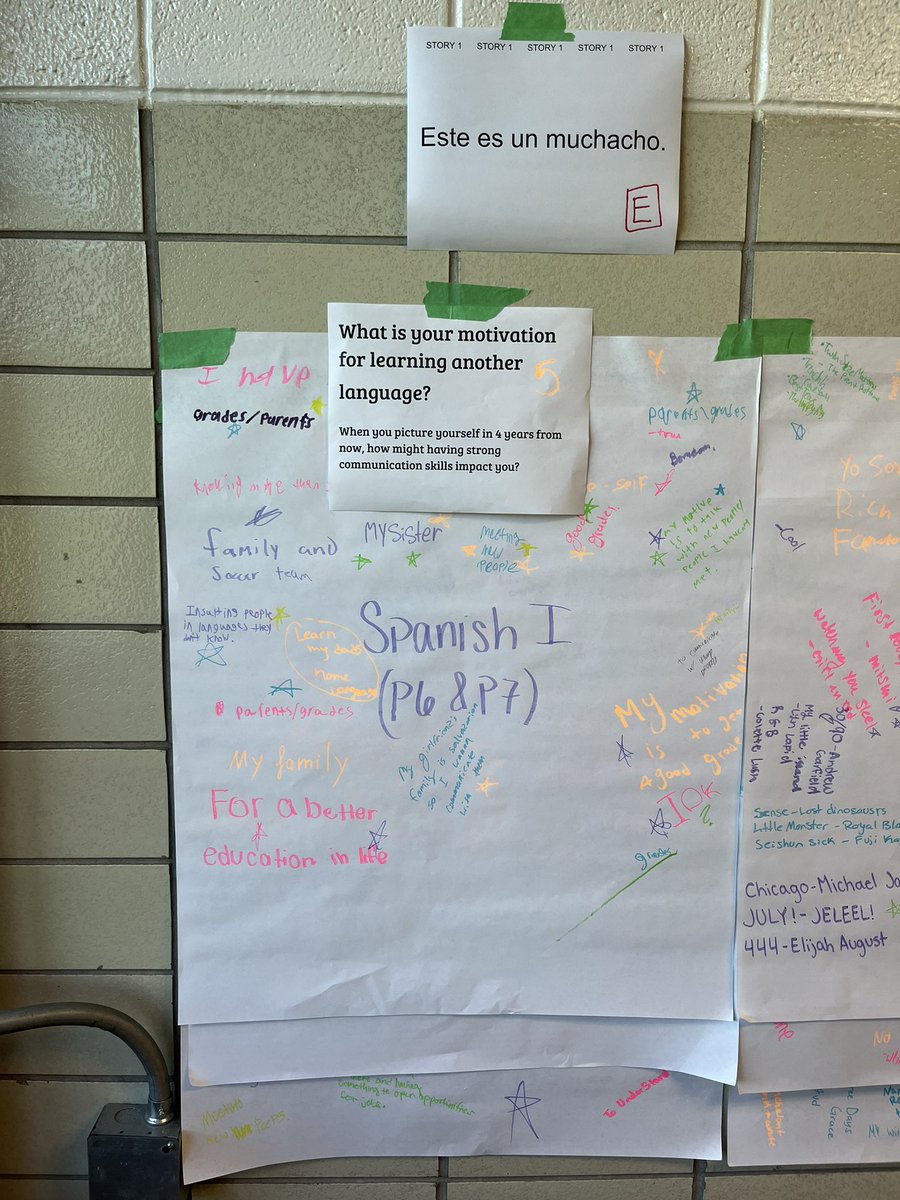 STORY 1 STORY 1 STORY 1 STORY 1 STORY 1
Este es un muchacho.
E
What is your motivation
for learning another
language?
When you picture yourself in 4 years from
now, how might having strong
communication skills impact you?
5
I have
grades/Parents
parents/grades
Boredom.
self
Knowing more than
family and
Soccer team
MY Sister
Meeting
new
people
good
grades!
my motive
is to talk
with new people
people I haven't
met.
Insulting people
in languages they
don't know.
Learn
my dads
home
language
Spanish I
(P6 & P7)
to communicate
w/
parents/grades
My family
My girlfriend's
family is
so I wanna
communicate
with them
My motivation
is to get
a good grade
For a better
education in life
IDK
?
grades
Cool
Yo So
Rich
First
mitski
watching you
30/90-Andrew
Garfield
My little island
R&B
Sense-Lost dinosaurs
Little Monster - Royal Bl
Seishun Sick - Fuji Ka
Chicago-Michael Ja
JULY!-JELEEL!
444-Elijah August
Meeting
new peeps.
something to open opportunities
for jobs.
To Understand
No
Days
Grace